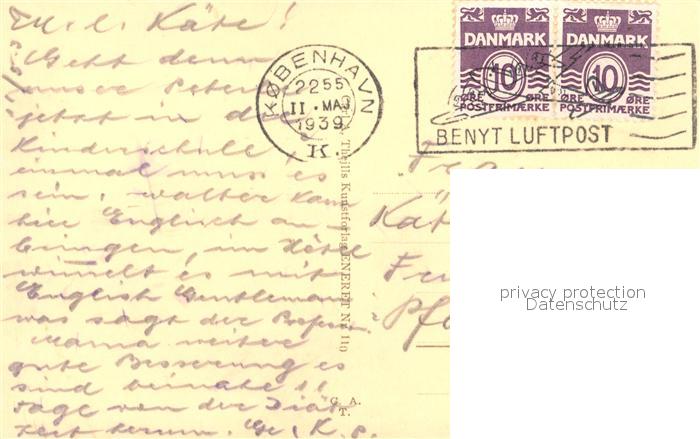 M. l. Käte!
Geht denn
unser Peter
jetzt in die
Kinderschule,
einmal muss es
sein. Walter kann
hier Englisch an-
bringen, im Hôtel
wimmelt es mit
English Gentleman
was sagt der
Mama weiter
gute Besserung es
sind beinahe 11
Tage von der
zeit herum.
KØBENHAVN
2255
11. MAJ
1939
K.
DANMARK
10
ØRE ØRE
POSTFRIMÆRKE
DANMARK
10
ØRE ØRE
POSTFRIMÆRKE
BENYT LUFTPOST
Thejlls Kunstforlag ENERET Nr. 110
G. A.
T.
Kät
privacy protection
Datenschutz